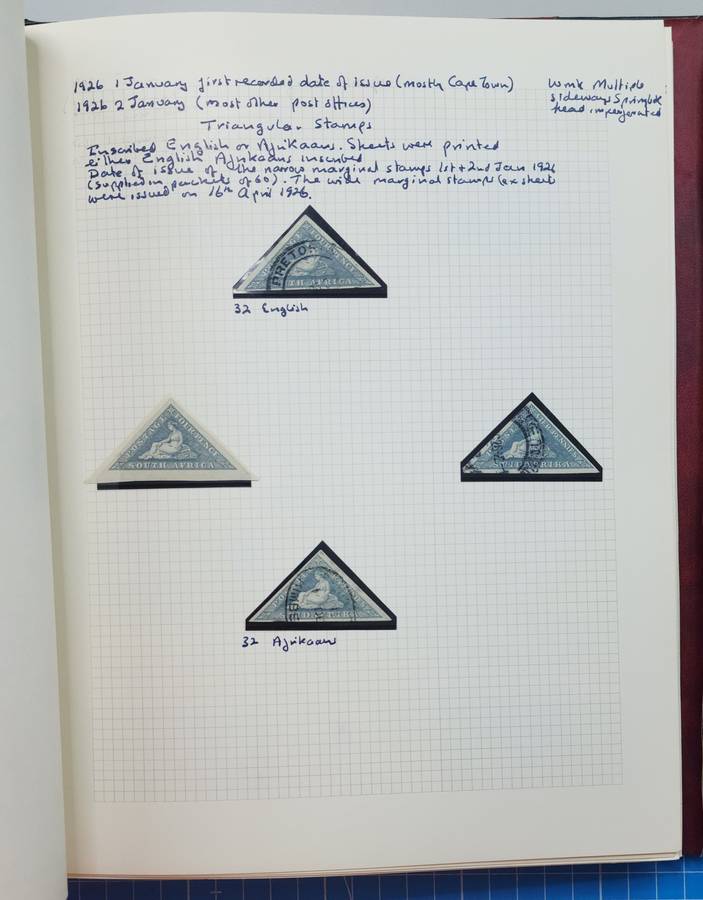 1926 1 January first recorded date of issue (mostly Cape Town)
1926 2 January (most other post offices)
Wmk Multiple
sideways Springbok
head imperforated
Triangular Stamps
Inscribed English or Afrikaans. Sheets were printed
either English Afrikaans inscribed
Date of issue of the narrow marginal stamps 1st + 2nd Jan 1926
(supplied in packets of 60). The wide marginal stamps (ex sheets
were issued on 16th April 1926.
PRETOR
TH AFRICA
32 English
POSTAGE FOUR PENCE
SOUTH AFRICA
SUID AFRIKA
SUID AFRIKA
32 Afrikaans